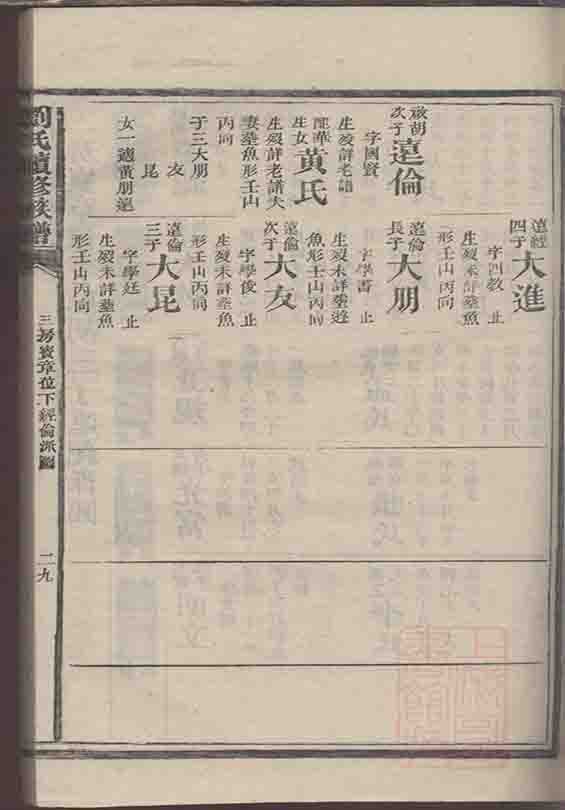 啟胡次子遠倫
字國賢
生歿詳老譜
配華生女黃氏
生歿詳老譜夫
妻塟魚形壬山
丙向
子三大朋
友
昆
女一適黃朋
遠經四子大進
字四教 止
生歿未詳塟魚
形壬山丙向
遠倫長子大朋
字學書 止
生歿未詳塟
魚形壬山丙向
遠倫次子大友
字學俊 止
生歿未詳塟魚
形壬山丙向
遠倫三子大昆
字學廷 止
生歿未詳塟魚
形壬山丙向
劉氏續修族譜
三房寶章位下經倫派圖
二九